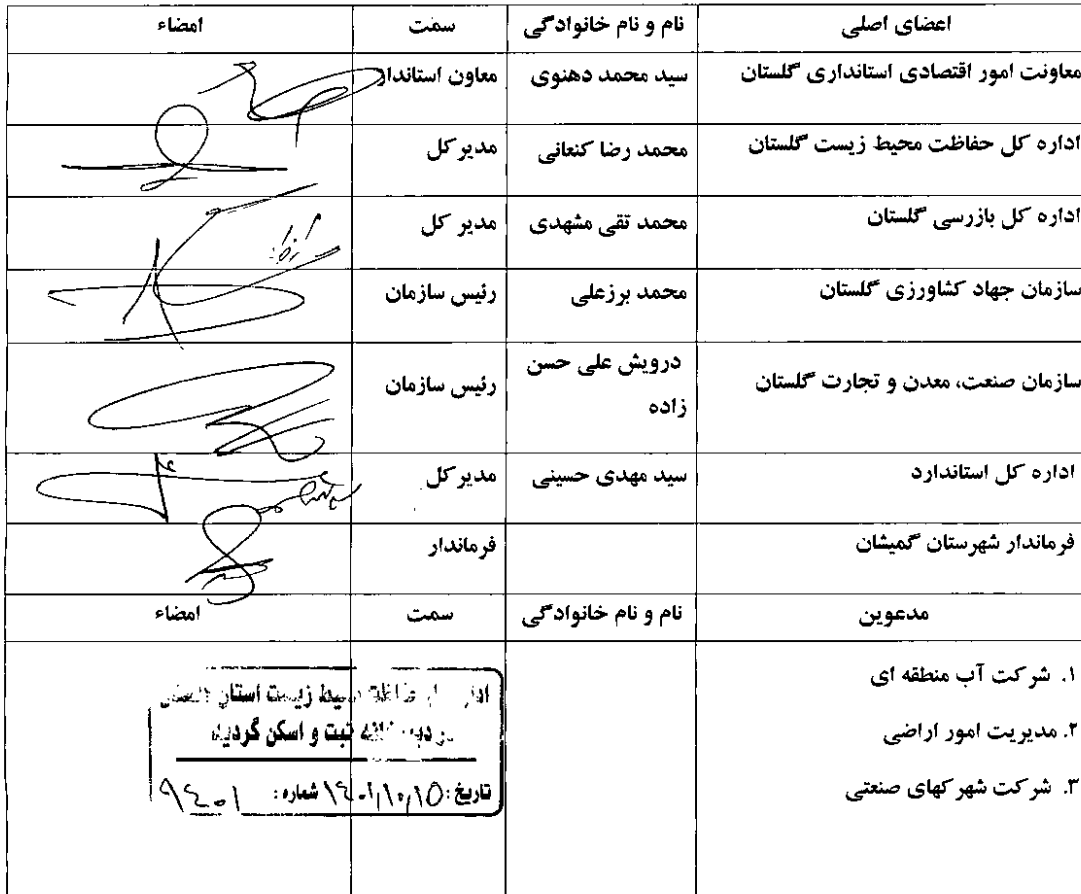 اعضای اصلی نام و نام خانوادگی سمت امضاء
معاونت امور اقتصادی استانداری گلستان سید محمد دهنوی معاون استاندار
اداره کل حفاظت محیط زیست گلستان محمد رضا کنعانی مدیر کل
اداره کل بازرسی گلستان محمد تقی مشهدی مدیر کل
سازمان جهاد کشاورزی گلستان محمد برزعلی رئیس سازمان
سازمان صنعت، معدن و تجارت گلستان درویش علی حسن رئیس سازمان
زاده
اداره کل استاندارد سید مهدی حسینی مدیر کل
فرماندار شهرستان گمیشان فرماندار
مدعوین نام و نام خانوادگی سمت امضاء
۱. شرکت آب منطقه ای
۲. مدیریت امور اراضی
۳. شرکت شهرکهای صنعتی
زیست استان
ثبت و اسکن گردید
تاریخ: ۱۴۰۱,۱۰,۱۵ شماره: ۹۴۰۱